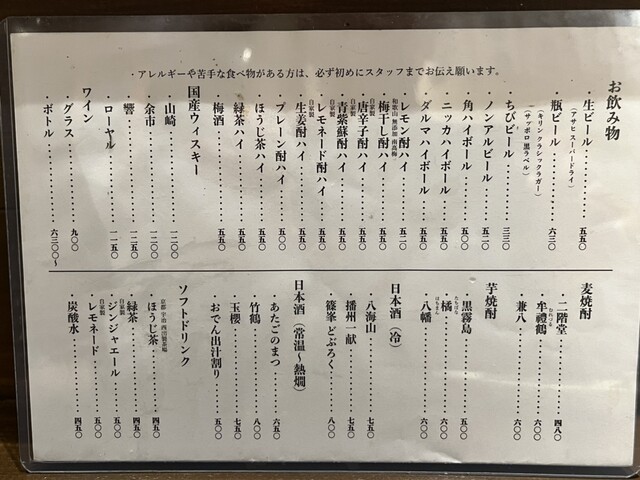 ・アレルギーや苦手な食べ物がある方は、必ず初めにスタッフまでお伝え願います。
お飲み物
・生ビール・・・・・・五五〇
（アサヒ スーパードライ）
・瓶ビール・・・・・・六三〇
（キリン クラシックラガー）
（サッポロ 黒ラベル）
・ちびビール・・・・・・三三〇
・ノンアルビール・・・・・・五二〇
・角ハイボール・・・・・・五〇〇
・ニッカハイボール・・・・・・五五〇
・ダルマハイボール・・・・・・五五〇
・レモン酎ハイ・・・・・・五二〇
和歌山 無添加 南高梅
・梅干し酎ハイ・・・・・・五五〇
自家製
・唐辛子酎ハイ・・・・・・五五〇
自家製
・青紫蘇酎ハイ・・・・・・五五〇
自家製
・レモネード酎ハイ・・・・・・五五〇
自家製
・生姜酎ハイ・・・・・・五五〇
・プレーン酎ハイ・・・・・・五〇〇
・ほうじ茶ハイ・・・・・・五五〇
・緑茶ハイ・・・・・・五五〇
・梅酒・・・・・・五五〇
国産ウィスキー
・山崎・・・・・・一二〇〇
・余市・・・・・・一二〇〇
・響・・・・・・一二五〇
・ローヤル・・・・・・一一五〇
ワイン
・グラス・・・・・・九〇〇
・ボトル・・・・・・六三〇〇〜
麦焼酎
・二階堂・・・・・・四八〇
・牟禮鶴・・・・・・六〇〇
むれづる
・兼八・・・・・・六〇〇
芋焼酎
・黒霧島・・・・・・五〇〇
・橘・・・・・・六〇〇
たちばな
・八幡・・・・・・六〇〇
はちまん
日本酒（冷）
・八海山・・・・・・七五〇
・播州一献・・・・・・七五〇
・篠峯どぶろく・・・・・・八〇〇
日本酒（常温〜熱燗）
・あたごのまつ・・・・・・六五〇
・竹鶴・・・・・・八〇〇
・玉櫻・・・・・・七五〇
・おでん出汁割り・・・・・・五〇〇
ソフトドリンク
・ほうじ茶・・・・・・四五〇
・緑茶・・・・・・四五〇
自家製
・ジンジャエール・・・・・・五〇〇
自家製
・レモネード・・・・・・五〇〇
・炭酸水・・・・・・四五〇